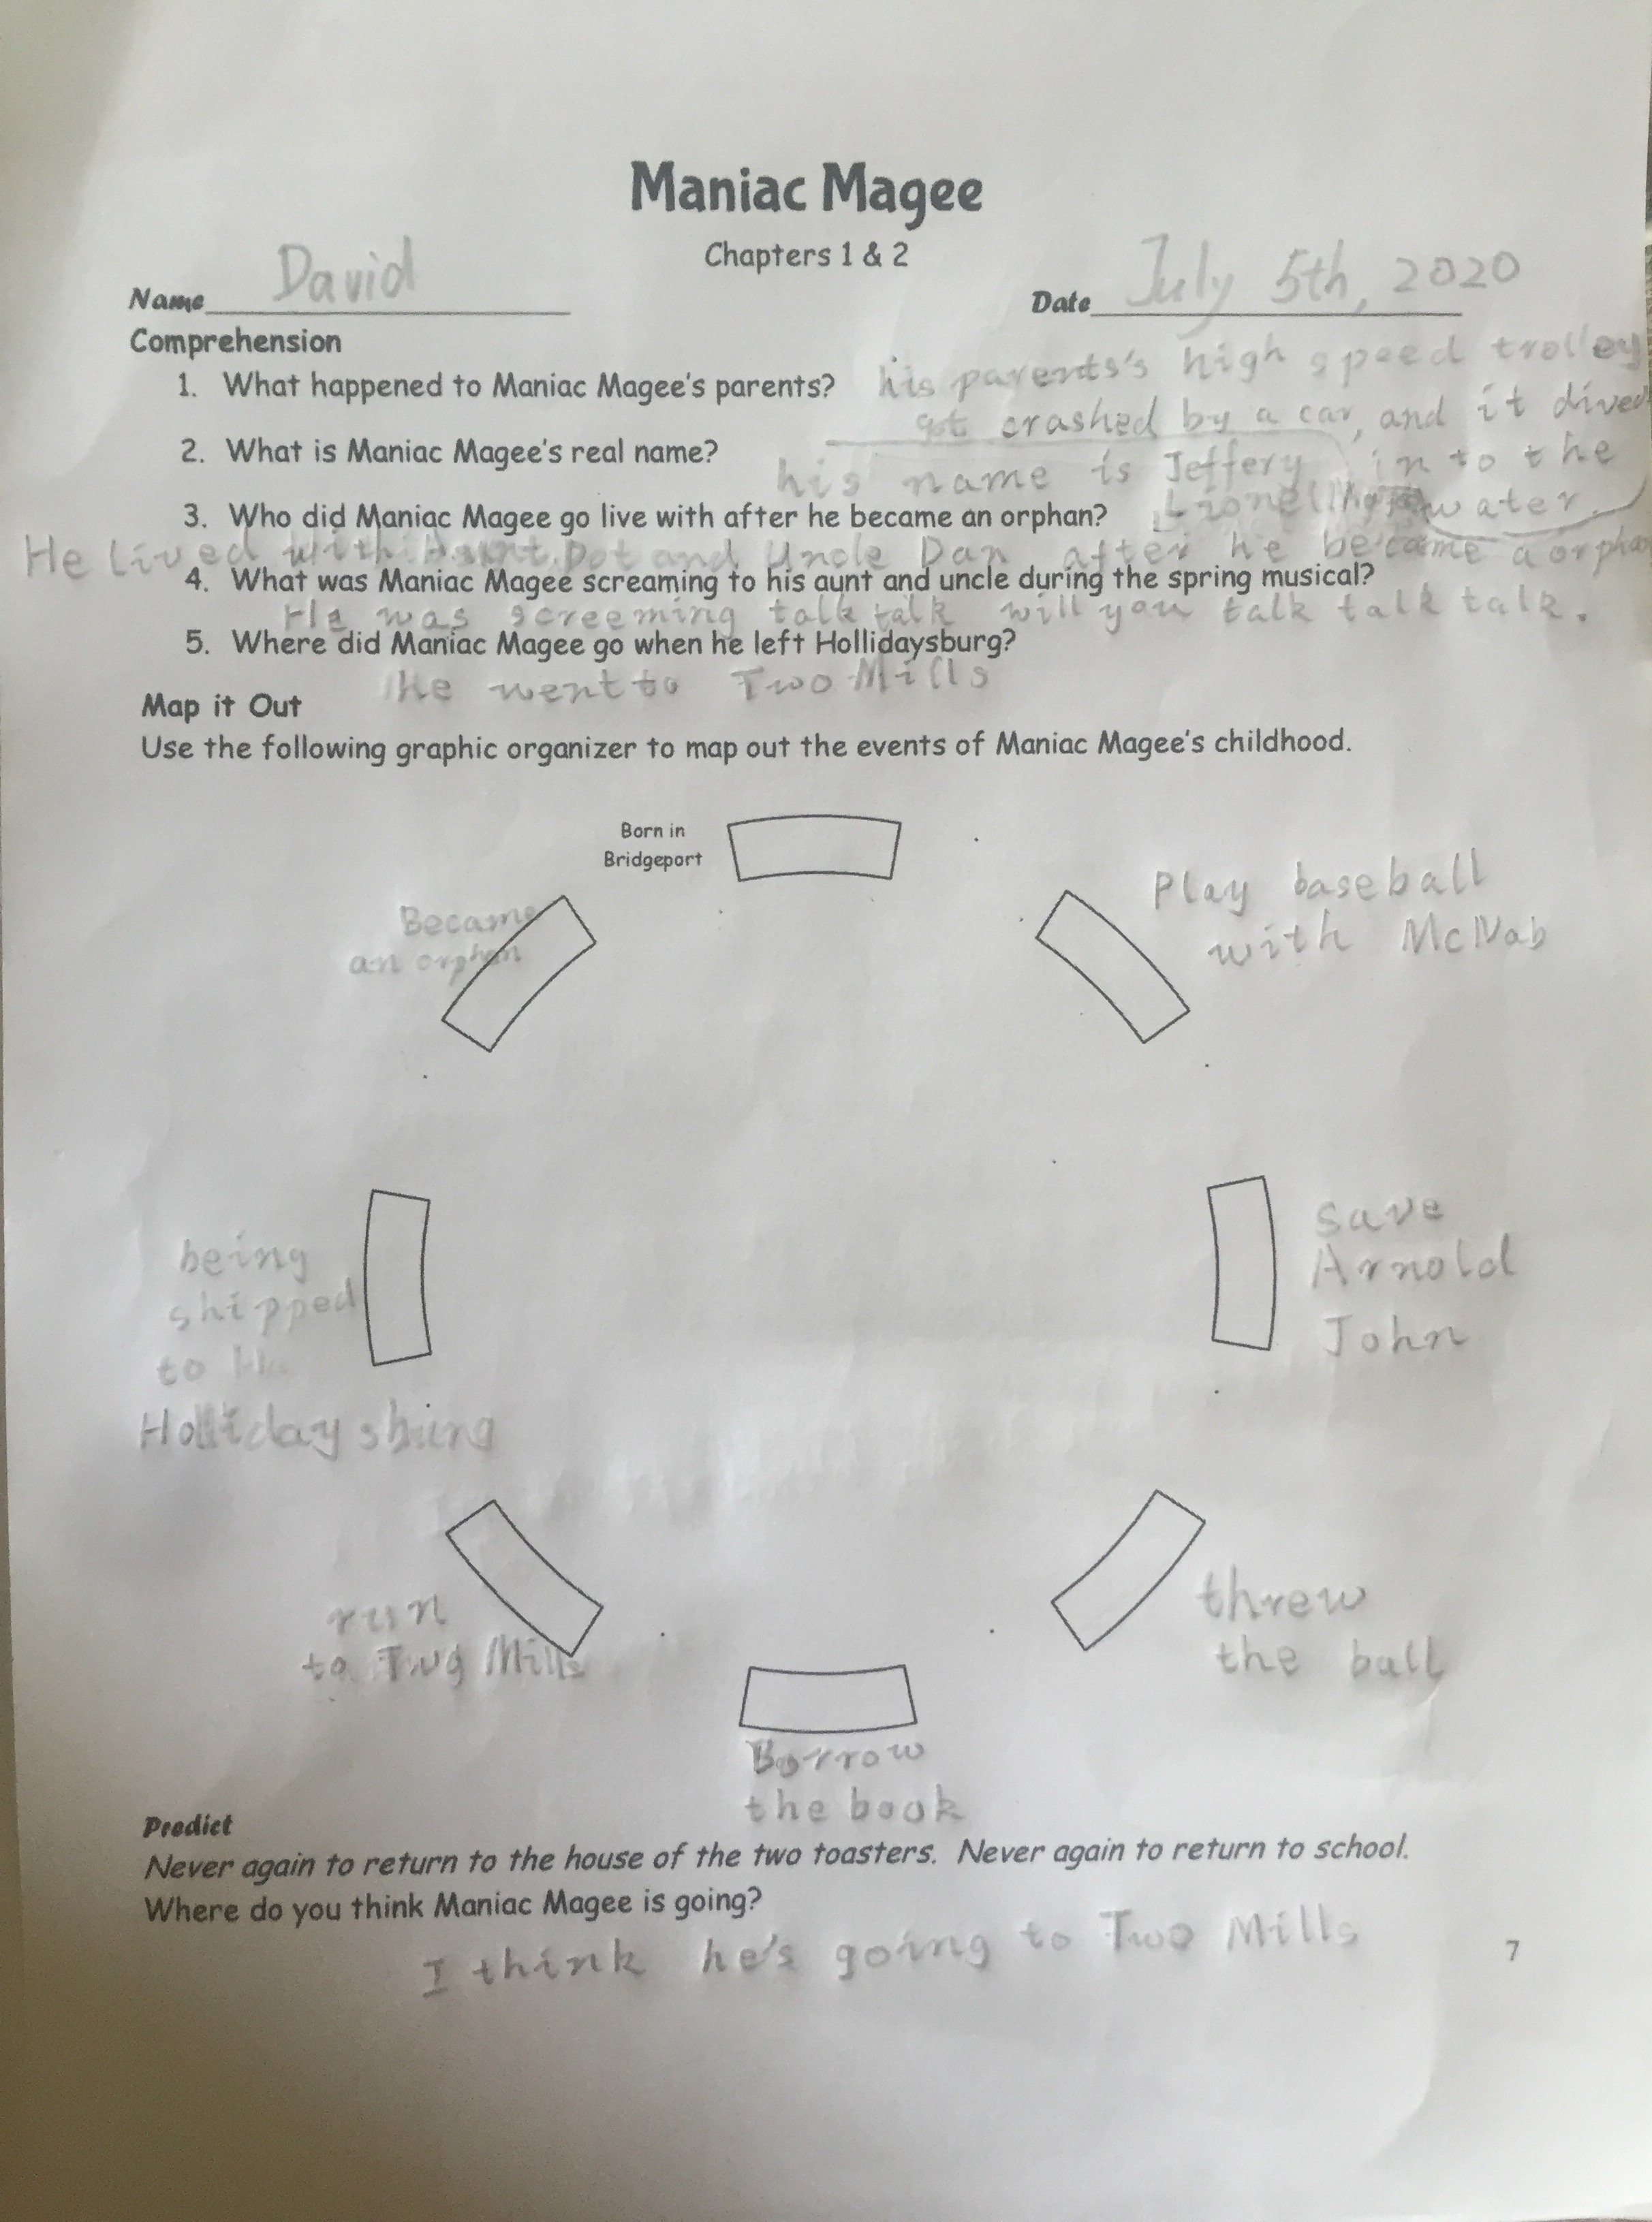 Maniac Magee
Chapters 1 & 2
Name David
Date July 5th, 2020
Comprehension
1. What happened to Maniac Magee's parents? his parents's high speed trolley
got crashed by a car, and it dived
in to the
water.
2. What is Maniac Magee's real name?
his name is Jeffery
Lionel
3. Who did Maniac Magee go live with after he became an orphan?
He lived with Aunt Dot and Uncle Dan after he became a orphan
4. What was Maniac Magee screaming to his aunt and uncle during the spring musical?
He was screeming talk talk will you talk talk talk.
5. Where did Maniac Magee go when he left Hollidaysburg?
He went to Two Mills
Map it Out
Use the following graphic organizer to map out the events of Maniac Magee's childhood.
Born in
Bridgeport
Became
an orphan
being
shipped
to
Hollidaysburg
run
to Two Mills
Borrow
the book
threw
the ball
save
Arnold
John
Play baseball
with McNab
Predict
Never again to return to the house of the two toasters. Never again to return to school.
Where do you think Maniac Magee is going?
I think he's going to Two Mills
7